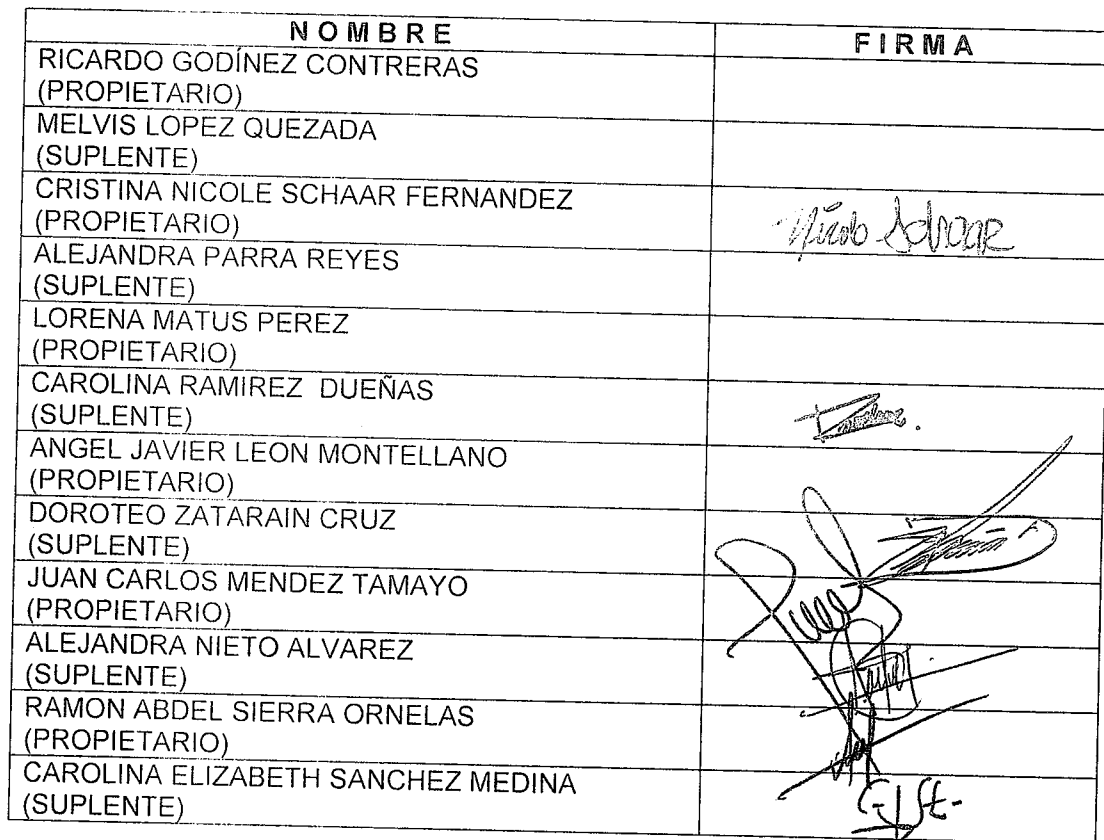 NOMBRE FIRMA
RICARDO GODÍNEZ CONTRERAS
(PROPIETARIO)
MELVIS LOPEZ QUEZADA
(SUPLENTE)
CRISTINA NICOLE SCHAAR FERNANDEZ
(PROPIETARIO) Nicole Schaar
ALEJANDRA PARRA REYES
(SUPLENTE)
LORENA MATUS PEREZ
(PROPIETARIO)
CAROLINA RAMIREZ DUEÑAS
(SUPLENTE)
ANGEL JAVIER LEON MONTELLANO
(PROPIETARIO)
DOROTEO ZATARAIN CRUZ
(SUPLENTE)
JUAN CARLOS MENDEZ TAMAYO
(PROPIETARIO)
ALEJANDRA NIETO ALVAREZ
(SUPLENTE)
RAMON ABDEL SIERRA ORNELAS
(PROPIETARIO)
CAROLINA ELIZABETH SANCHEZ MEDINA
(SUPLENTE)